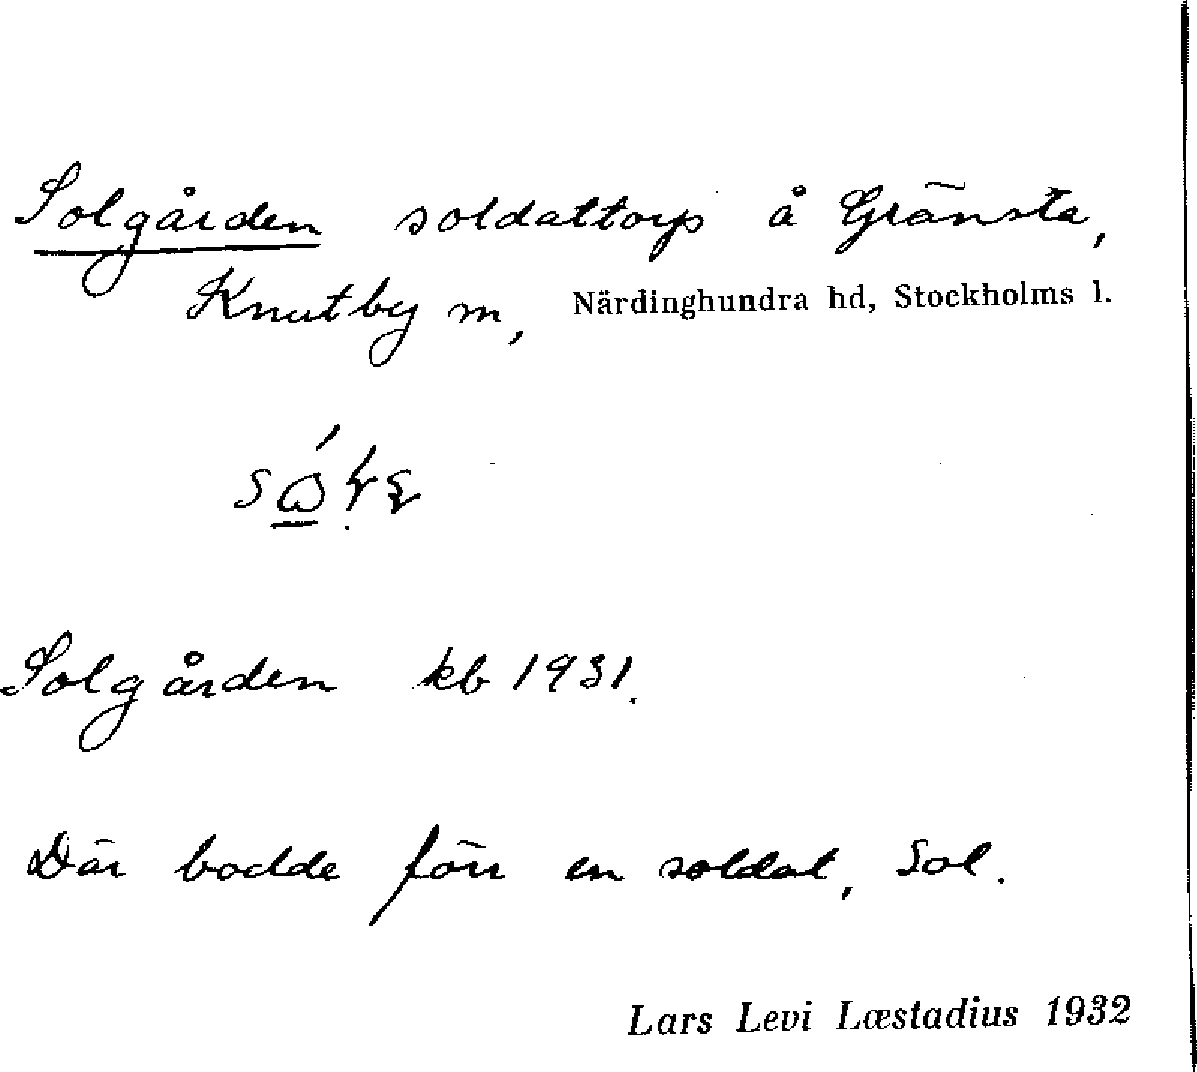 Solgården soldattorp å Gränsta,
Knutby m, Närdinghundra hd, Stockholms l.
Solgården kb 1931.
Där bodde förr en soldat, Sol.
Lars Levi Læstadius 1932